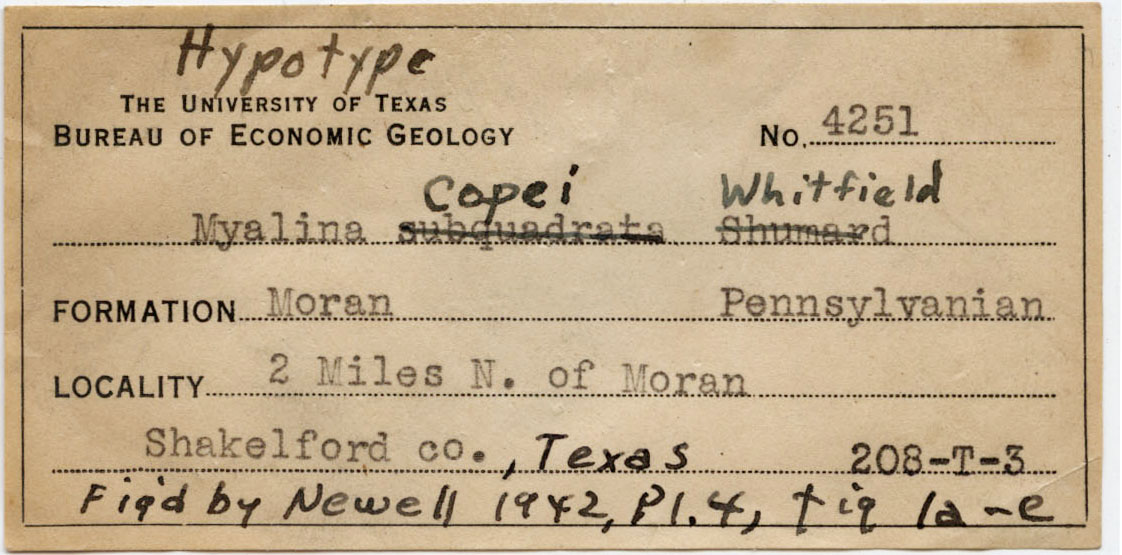 Hypotype
THE UNIVERSITY OF TEXAS
BUREAU OF ECONOMIC GEOLOGY No. 4251
Copei Whitfield
Myalina subquadrata Shumard
FORMATION Moran Pennsylvanian
LOCALITY 2 Miles N. of Moran
Shakelford co., Texas 208-T-3
Fig'd by Newell 1942, Pl. 4, fig 1a-e